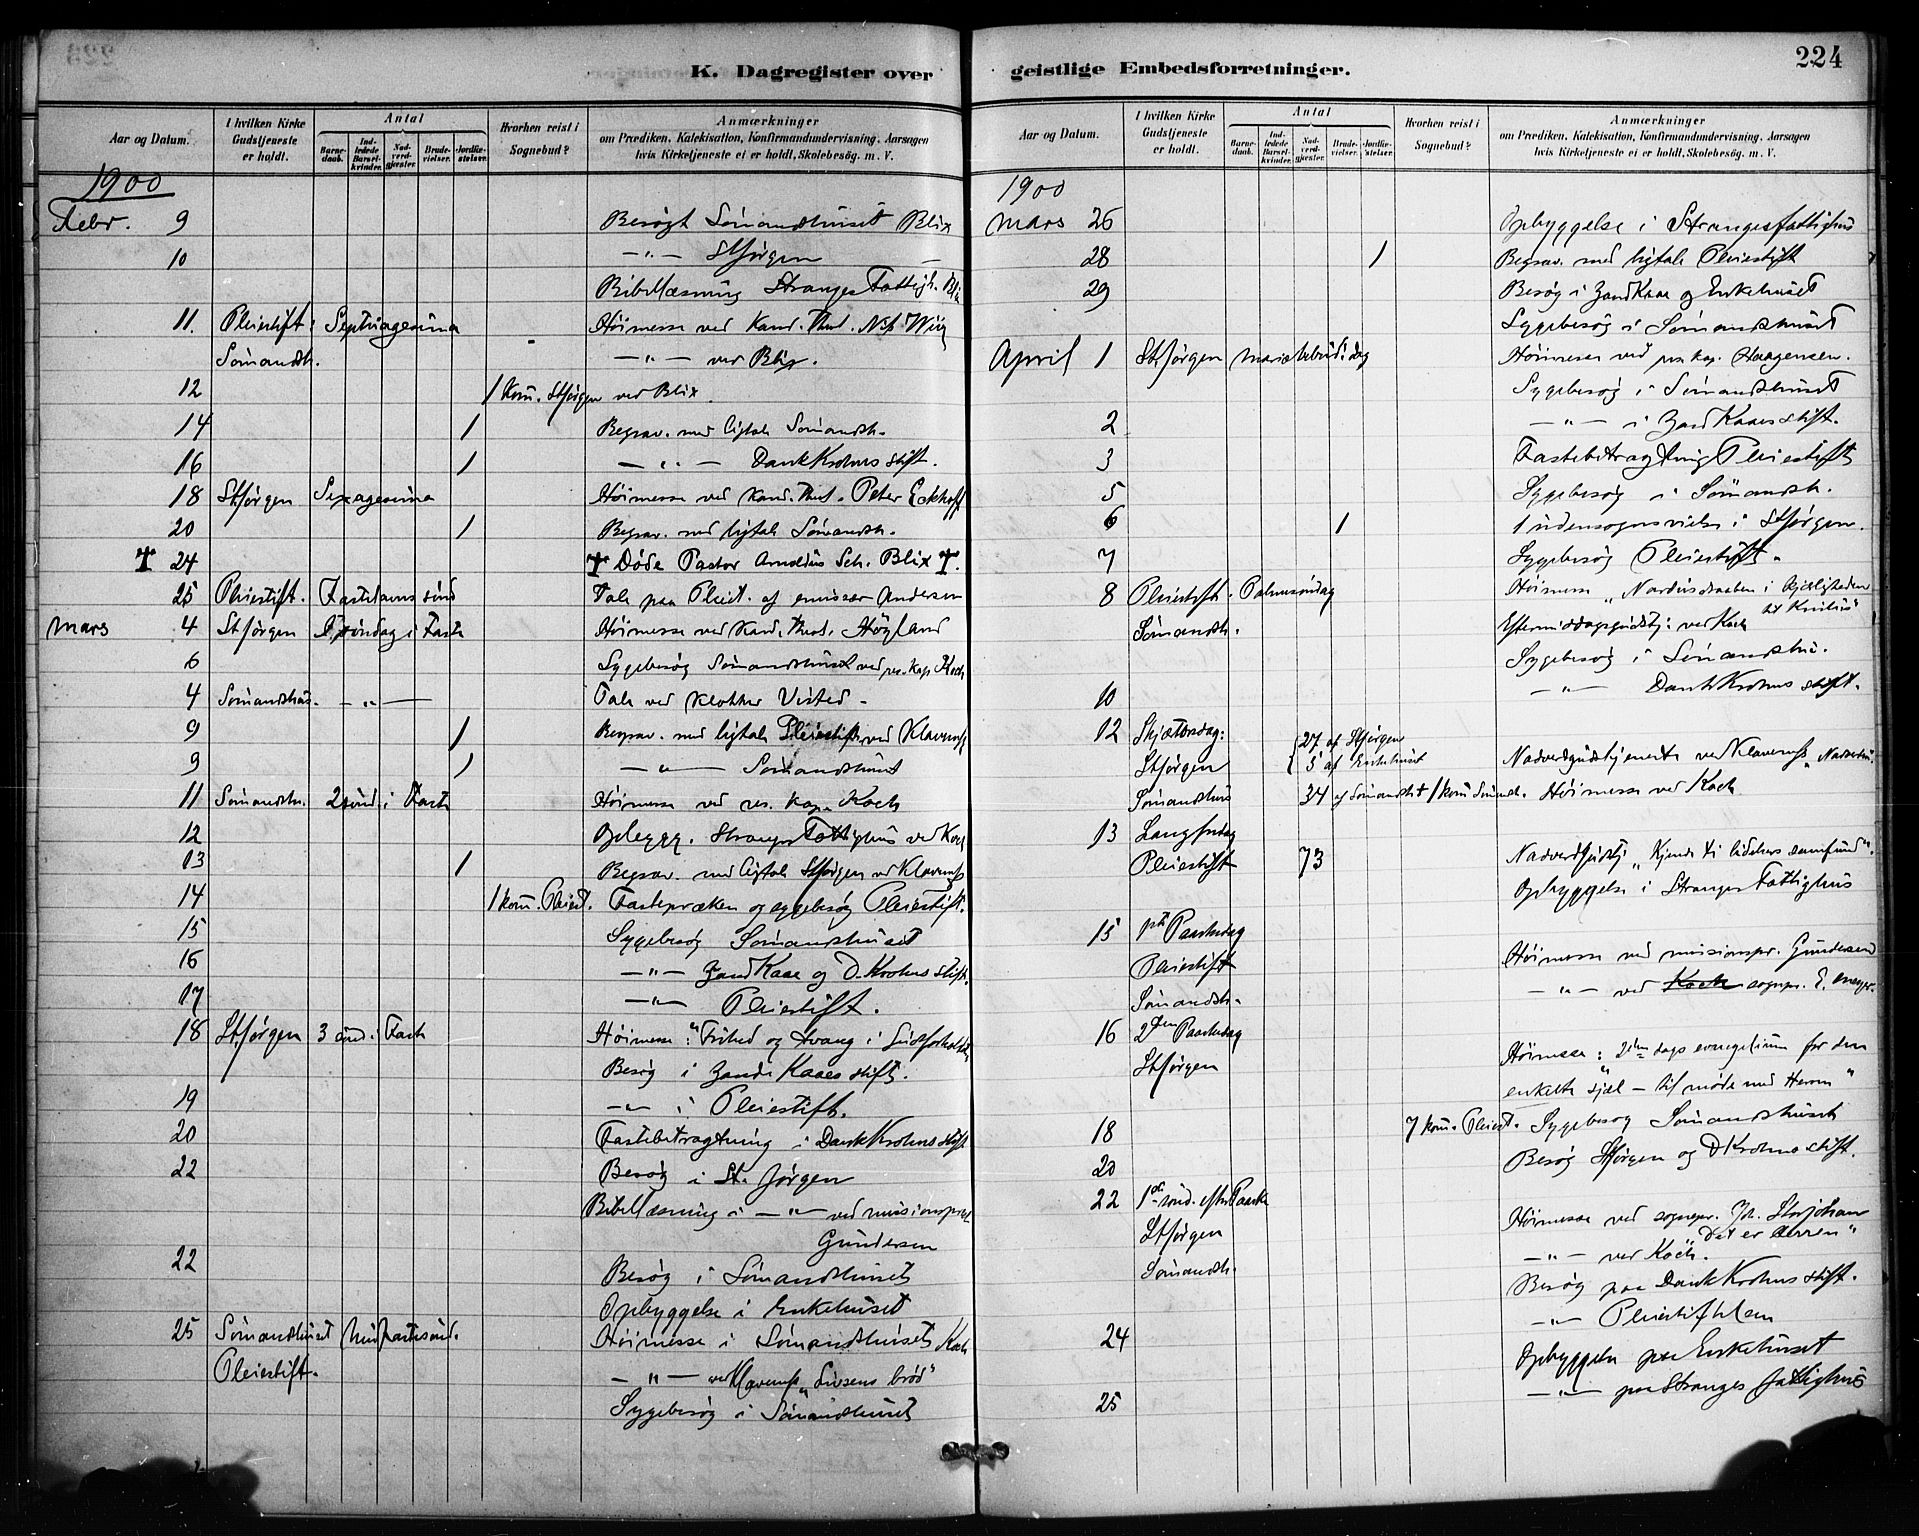 224
K. Dagregister over
Aar og Datum.
I hvilken Kirke Gudstjeneste er holdt.
Antal
Barne-daab.
Ind-ledede Barsel-kvinder.
Nad-verd-gjester.
Brude-vielser.
Jordfæ-stelser.
Hvorhen reist i Sognebud?
Anmærkninger
om Prædiken, Katekisation, Konfirmandundervisning, Aarsagen
hvis Kirketjeneste ei er holdt, Skolebesög. m. V.
1900
Febr. 9 Besøgt Sömandshuset Blix
10 — " — St Jørgen —
Bibellæsning Stranges Fattigh. Blix
11. Pleiestift: Septuagesima Høimesse ved Kand. Theol. Wiig
Sömandsh. — " — ved Blix.
12 1 kom. St Jørgen ved Blix.
14 1 Begrav. med ligtale Sömandsh.
16 1 — " — DankKrohns stift.
18 St Jørgen Sexagesima Høimesse ved Kand. Theol. Peter Eckhoff
20 1 Begrav. med ligtale Sömandsh.
✝ 24 ✝ Døde Pastor Arnoldus Sch. Blix ✝.
25 Pleiestift. Fastelavns sönd Tale paa Pleiest. af emissær Andersen
Mars 4 St Jørgen 1 söndag i Faste Høimesse ved Kand. Theol. Högland
6 Sygebesøg Sömandshuset ved res. kap. Koch
4 Sömandshus. — " — Tale ved klokker Visted -
9 1 Begrav. med ligtale Pleiestift ved Klaveness
9 1 — " — Sömandshuset
11 Sömandsh. 2 sönd. i Faste Høimesse ved res. kap. Koch
12 Opbygg. Stranges Fattighus ved Koch
13 1 Begrav. med ligtale St Jørgen ved Klaveness
14 1 kom. Pleiest. Fastepræken og sygebesøg Pleiestift.
15 Sygebesøg Sömandshuset
16 — " — Zand Kaae og D. Krohns stift.
17 — " — Pleiestift.
18 St Jørgen 3 sönd. i Faste Høimesse: "Frihed og tvang i Gudsforholdet
Besøg i Zands Kaaes stift.
19 — " — i Pleiestift.
20 Fastebetragtning i DankKrohns stift
22 Besøg i St. Jørgen
Bibellæsning i — " — ved missionspræst
Gundersen
22 Besøg i Sömandshuset
Opbyggelse i Enkehuset
25 Sömandshuset Midfastesönd. Høimesse i Sömandshuset Koch
Pleiestift. — " — ved Klaveness „Livsens bröd"
Sygebesøg i Sömandshuset
geistlige Embedsforretninger.
Aar og Datum.
I hvilken Kirke Gudstjeneste er holdt.
Antal
Barne-daab.
Ind-ledede Barsel-kvinder.
Nad-verd-gjester.
Brude-vielser.
Jordfæ-stelser.
Hvorhen reist i Sognebud?
Anmærkninger
om Prædiken, Katekisation, Konfirmandundervisning, Aarsagen
hvis Kirketjeneste ei er holdt, Skolebesög. m. V.
1900
Mars 26 Opbyggelse i Strangesfattighus
28 1 Begrav. med ligtale Pleiestift
29 Besøg i Zand Kaae og Enkehuset
Sygebesøg i Sömandshuset
April 1 St Jørgen Mariæ bud. dag Høimesse ved res. kap. Haagensen.
Sygebesøg i Sömandshuset
2 — " — i Zand Kaaes stift.
3 Fastebetragtning Pleiestift
5 Sygebesøg i Sömandsh.
6 1 1 udensognsvielse i St Jørgen.
7 Sygebesøg Pleiestift.
8 Pleiestift. Palmesöndag Høimesse „Nardusdraaben i kjærligheden
til Kristus"
Sömandsh. Eftermiddagsgudstj: ved Koch
Sygebesøg i Sömandshu.
10 — " — DankKrohns stift.
12 Skjærtorsdag: 27 af St Jørgen
St Jørgen 5 af Enkehuset Nadverdgudstjeneste ved Klaveness
Sömandshus 34 af Sömandst 1 kom Sömandsh. Høimesse ved Koch
13 Langfredag
Pleiestift 73 Nadverdgudstj „Kjende ti lidelsers samfund".
Opbyggelse i Stranges Fattighus
15 1ste Paaskedag
Pleiestift Høimesse ved missionspr. Gundersen
Sömandsh. — " — ved Koch sognepr. E.
16 2den Paaskedag
St Jørgen Høimesse: 2den dags evangelium for den
enkelte sjæl — til møde med Herren"
18 7 kom. Pleiest. Sygebesøg Sömandshuset
20 Besøg St Jørgen og DKrohns stift.
22 1ste sönd. efter Paaske
St Jørgen Høimesse ved sognepr. Joh. Storjohan
"Det er Herren"
Sömandsh. — " — ved Koch.
Besøg paa DankKrohns stift.
— " — Pleiestiftelsen
24 Opbyggelse paa Enkehuset
— " — paa Stranges fattighus
25